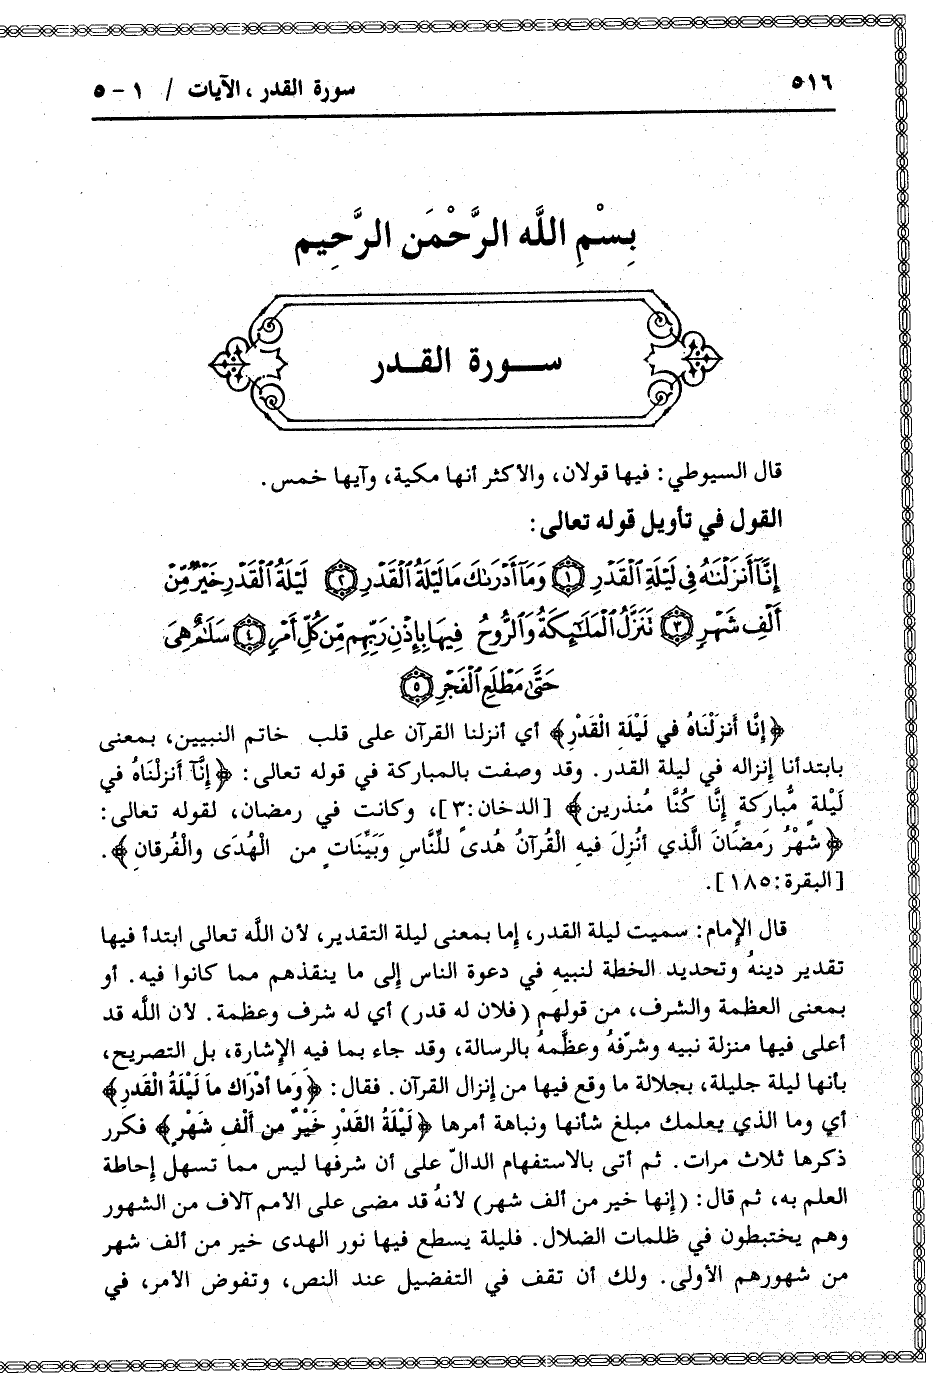 ٥١٦
سورة القدر ، الآيات / ١ - ٥
بِسْمِ اللَّه الرَّحْمَن الرَّحِيم
سـورة القـدر
قال السيوطي: فيها قولان، والأكثر أنها مكية، وآيها خمس.
القول في تأويل قوله تعالى:
إِنَّآ أَنزَلْنَٰهُ فِى لَيْلَةِ ٱلْقَدْرِ ١ وَمَآ أَدْرَىٰكَ مَا لَيْلَةُ ٱلْقَدْرِ ٢ لَيْلَةُ ٱلْقَدْرِ خَيْرٌ مِّنْ
أَلْفِ شَهْرٍ ٣ تَنَزَّلُ ٱلْمَلَٰٓئِكَةُ وَٱلرُّوحُ فِيهَا بِإِذْنِ رَبِّهِم مِّن كُلِّ أَمْرٍ ٤ سَلَٰمٌ هِىَ
حَتَّىٰ مَطْلَعِ ٱلْفَجْرِ ٥
﴿إِنَّا أَنزَلْنَاهُ في لَيْلَةِ الْقَدْرِ﴾ أي أنزلنا القرآن على قلب خاتم النبيين، بمعنى
بابتدأنا إنزاله في ليلة القدر. وقد وصفت بالمباركة في قوله تعالى: ﴿إِنَّآ أنزلْنَاهُ في
لَيْلةٍ مُّبارَكةٍ إنَّا كُنَّا مُنذرين﴾ [الدخان:٣]، وكانت في رمضان، لقوله تعالى:
﴿شهْرُ رَمضَانَ الَّذي أنُزِلَ فيهِ القُرآنُ هُدىً للنَّاسِ وَبَيِّنَاتٍ من الْهُدَى والْفُرقانِ﴾.
[البقرة:١٨٥].
قال الإمام: سميت ليلة القدر، إما بمعنى ليلة التقدير، لأن اللَّه تعالى ابتدأ فيها
تقدير دينهُ وتحديد الخطة لنبيهِ في دعوة الناس إلى ما ينقذهم مما كانوا فيه. أو
بمعنى العظمة والشرف، من قولهم (فلان له قدر) أي له شرف وعظمة. لأن اللَّه قد
أعلى فيها منزلة نبيه وشرّفهُ وعظَّمهُ بالرسالة، وقد جاء بما فيه الإشارة، بل التصريح،
بأنها ليلة جليلة، بجلالة ما وقع فيها من إنزال القرآن. فقال: ﴿وَما أدْرَاك ما لَيْلَةُ الْقَدرِ﴾
أي وما الذي يعلمك مبلغ شأنها ونباهة أمرها ﴿لَيْلَةُ القَدْرِ خَيْرٌ من أَلْفِ شَهْرٍ﴾ فكرر
ذكرها ثلاث مرات. ثم أتى بالاستفهام الدالّ على أن شرفها ليس مما تسهل إحاطة
العلم به، ثم قال: (إنها خير من ألف شهر) لأنهُ قد مضى على الأمم آلاف من الشهور
وهم يختبطون في ظلمات الضلال. فليلة يسطع فيها نور الهدى خير من ألف شهر
من شهورهم الأولى. ولك أن تقف في التفضيل عند النص، وتفوض الأمر، في